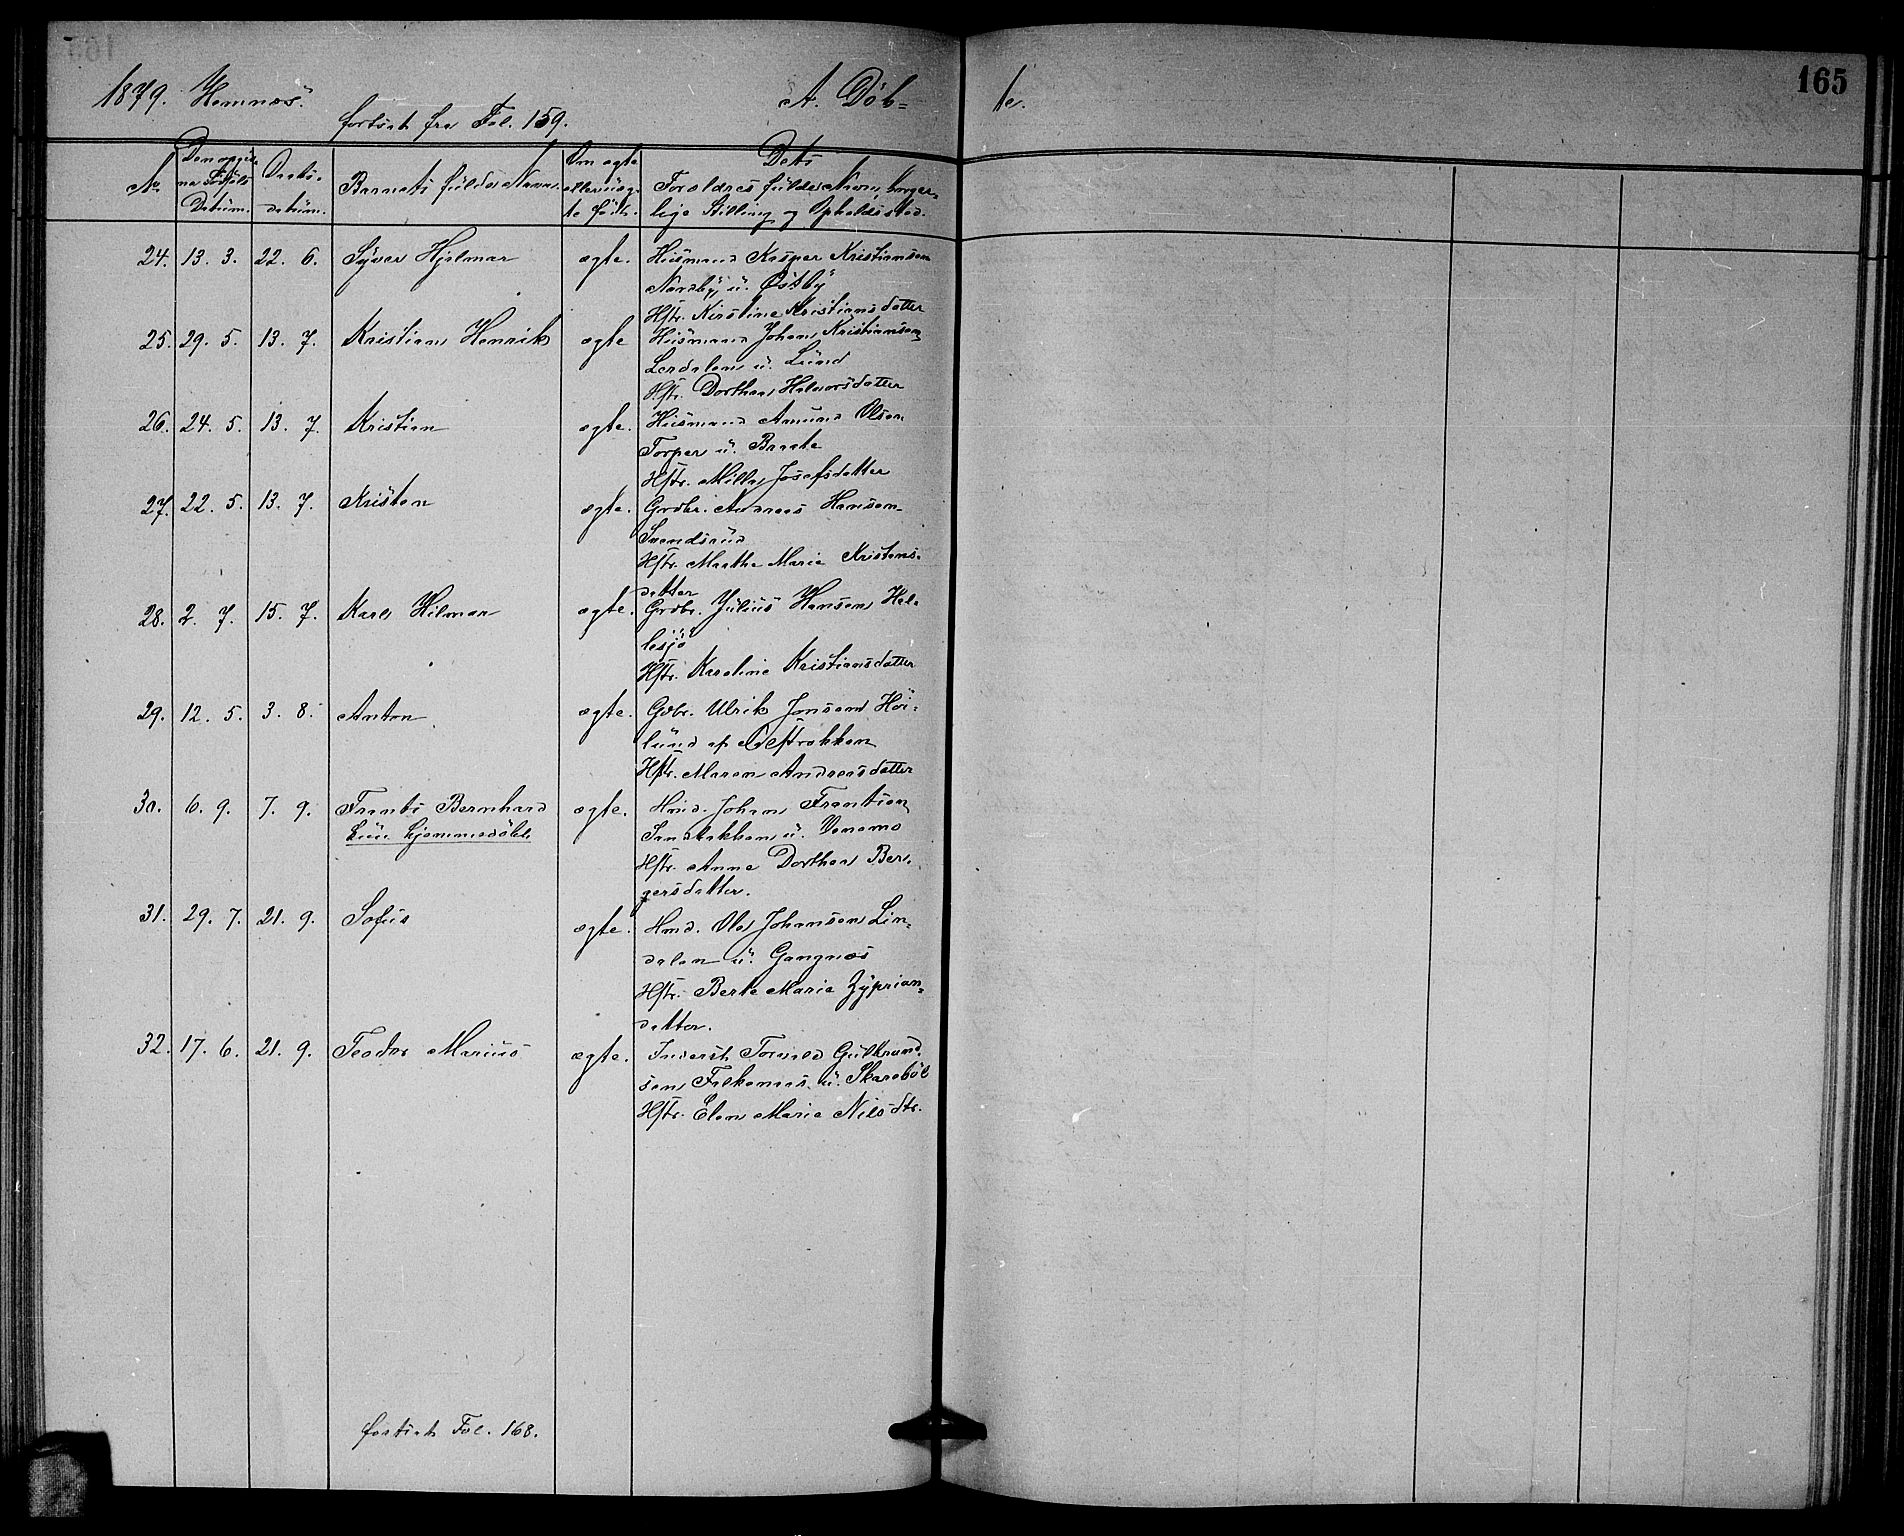 165
1879. Hemnæs. A. Døb= te.
fortsat fra Fol. 159.
No Den opgivne Fødsels Datum. Daabsdatum. Barnets fulde Navn. Om ægte eller uægte født. Dets Forældres fulde Navn, borgerlige Stilling og Opholdssted.
24. 13. 3. 22. 6. Syver Hjalmar ægte. Husmand Kasper Kristiansen
Nordby u. Østby
Hstr. Kirstine Kristiansdatter
25. 29. 5. 13. 7. Kristian Henrik ægte Husmand Johan Kristiansen
Lerdalen u. Lund
Hstr. Dorthea Halvorsdatter
26. 24. 5. 13. 7. Kristian ægte. Husmand Amund Olsen
Torper u. Braate
Hstr. Milla Josefsdatter
27. 22. 5. 13. 7. Kristen ægte. Grdbr. Andreas Hansen
Svendsrud
Hstr. Marthe Marie Kristens-
datter
28. 2. 7. 15. 7. Karl Hilmar ægte. Grdbr. Julius Hansen Hal-
lesjø
Hstr. Karoline Kristiansdatter
29. 12. 5. 3. 8. Anton ægte. Gdbr. Ulrik Jonsen Høi-
lund af
Hstr. Maren Andreasdatter
30. 6. 9. 7. 9. Frants Bernhard ægte. Hmd. Johan Frantsen
hjemmedøbt u.
Hstr. Anne Dorthea Ber-
gersdatter.
31. 29. 7. 21. 9. Sofus ægte. Hmd. Ole Johansen Lin-
dalen u. Gangnæs
Hstr. Berte Marie Zyprian=
datter.
32. 17. 6. 21. 9. Teodor Marius ægte. Inderst Torvald Gulbrand-
sen Falkenaas u. Skarebøl
Hstr. Elen Marie Nilsdtr.
fortsat Fol. 168.